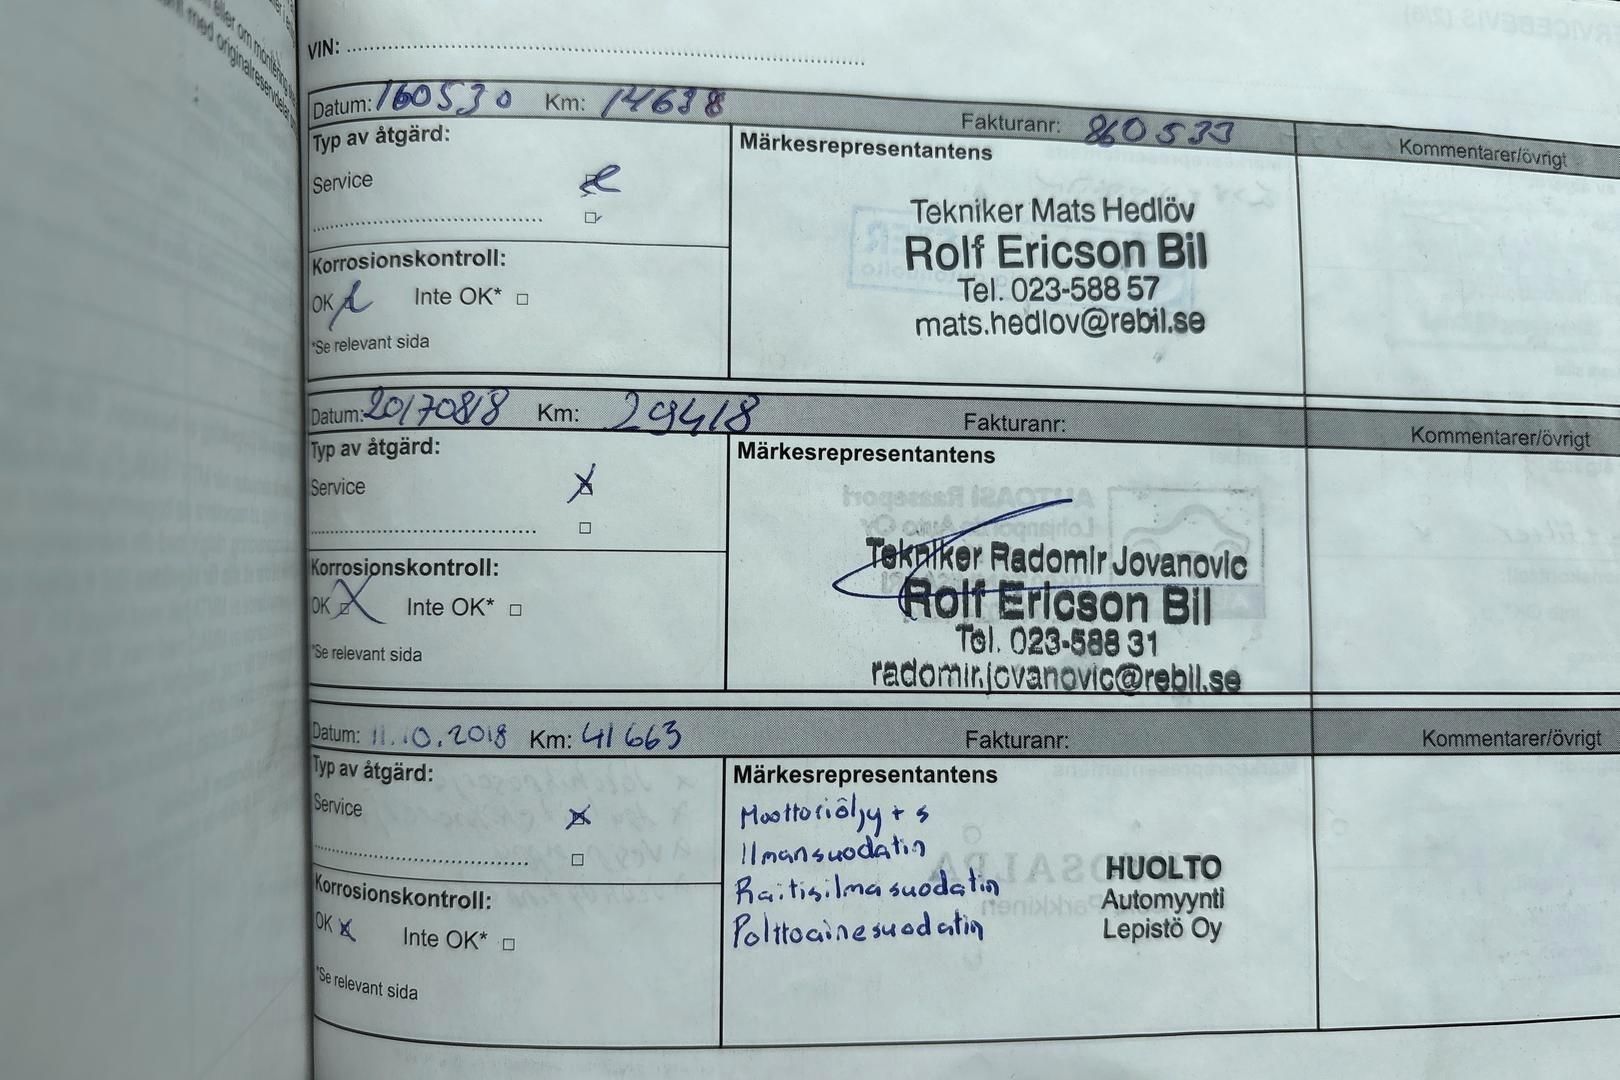 VIN:
Datum: 160530 Km: 14638 Fakturanr: 860533 Kommentarer/övrigt
Typ av åtgärd:
Service
Korrosionskontroll:
OK Inte OK*
*Se relevant sida
Märkesrepresentantens
Tekniker Mats Hedlöv
Rolf Ericson Bil
Tel. 023-588 57
mats.hedlov@rebil.se
Datum: 20170818 Km: 29418 Fakturanr: Kommentarer/övrigt
Typ av åtgärd:
Service
Korrosionskontroll:
OK Inte OK*
*Se relevant sida
Märkesrepresentantens
Tekniker Radomir Jovanovic
Rolf Ericson Bil
Tel. 023-588 31
radomir.jovanovic@rebil.se
Datum: 11.10.2018 Km: 41663 Fakturanr: Kommentarer/övrigt
Typ av åtgärd:
Service
Korrosionskontroll:
OK Inte OK*
*Se relevant sida
Märkesrepresentantens
Moottoriöljy + s
Ilmansuodatin
Raitisilmasuodatin
Polttoainesuodatin
HUOLTO
Automyynti
Lepistö Oy